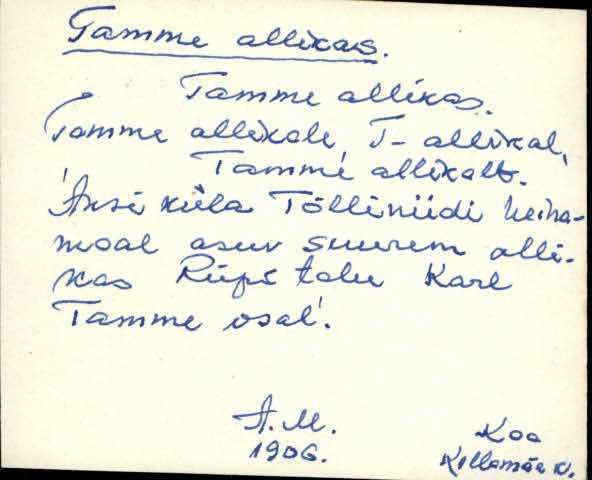 Tamme allikas.
Tamme allikas.
Tamme allikale, T-allikal,
Tamme allikalt.
Änsi küla Tõlliniidi heina-
maal asuv suurem alli-
kas Rüps talu Karl
Tamme osal.
A.M.
1906.
Koo
Kellamäe k.